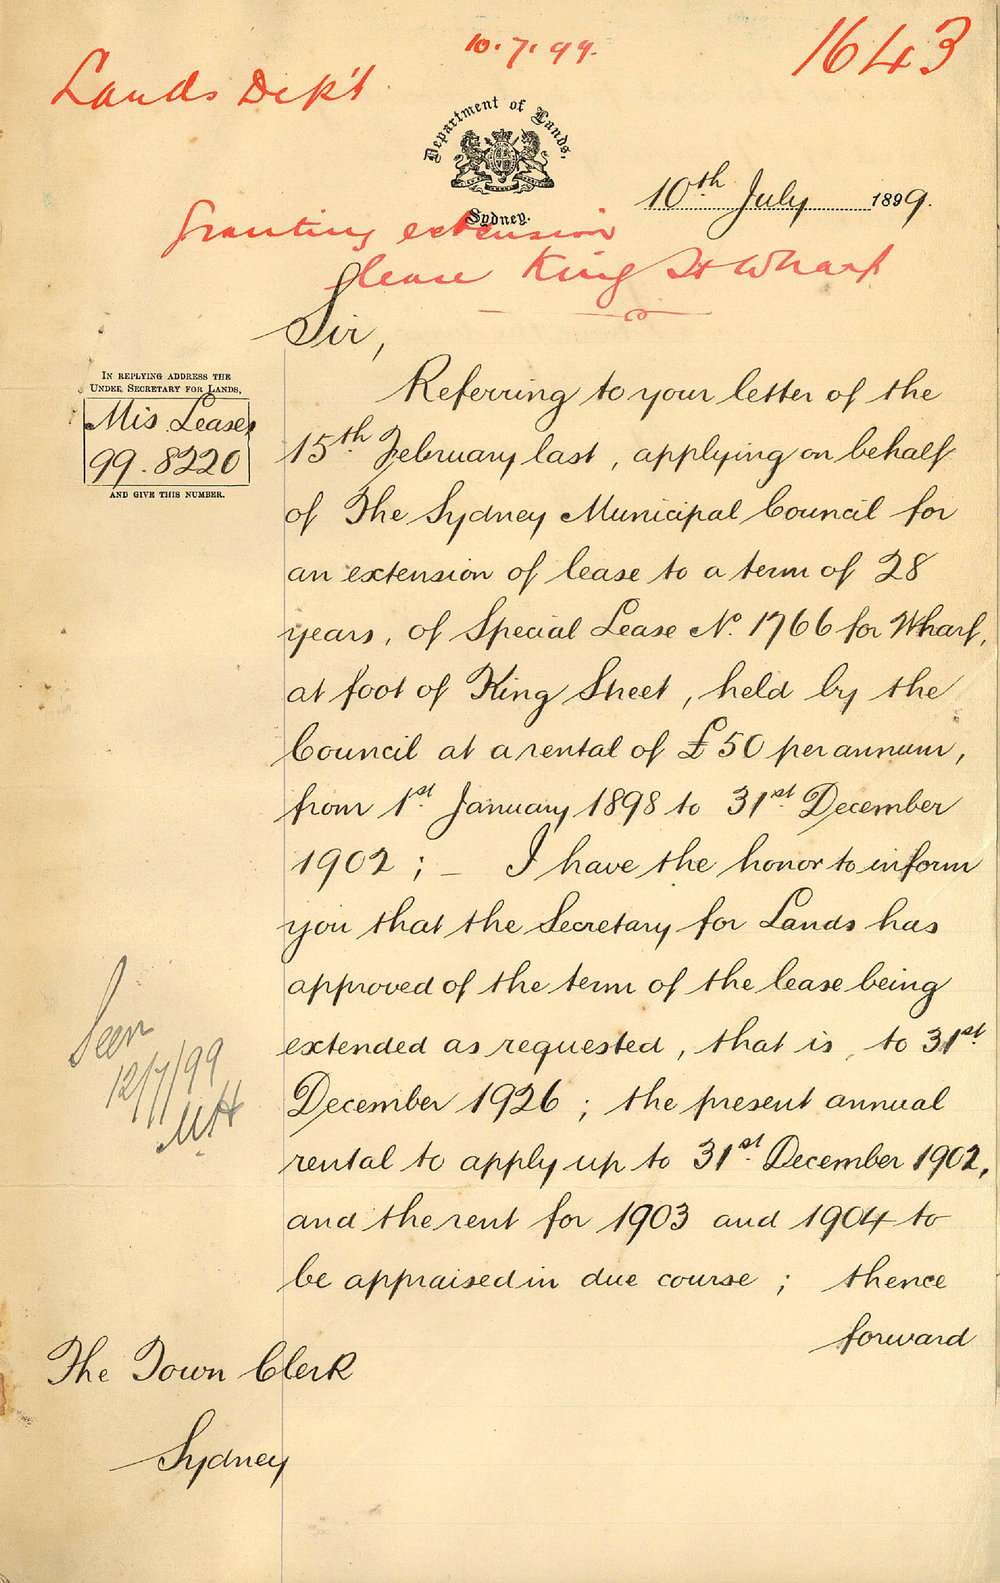 10.7.99.
1643
Lands Dep't
Department of Lands,
Sydney.
10th July 1899.
Granting extension
lease King St Wharf
Sir,
IN REPLYING ADDRESS THE
UNDER SECRETARY FOR LANDS,
Mis Leases
99.8220
AND GIVE THIS NUMBER.
Referring to your letter of the
15th February last, applying on behalf
of The Sydney Municipal Council for
an extension of lease to a term of 28
years, of Special Lease No. 1766 for Wharf,
at foot of King Street, held by the
Council at a rental of £50 per annum,
from 1st January 1898 to 31st December
1902; – I have the honor to inform
you that the Secretary for Lands has
approved of the term of the lease being
extended as requested, that is, to 31st
December 1926; the present annual
rental to apply up to 31st December 1902,
and the rent for 1903 and 1904 to
be appraised in due course; thence
forward
Seen
12/7/99
The Town Clerk
Sydney